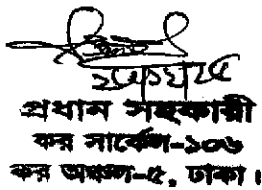 প্রধান সহকারী
কর সার্কেল-১০৬
কর অঞ্চল-৫, ঢাকা।